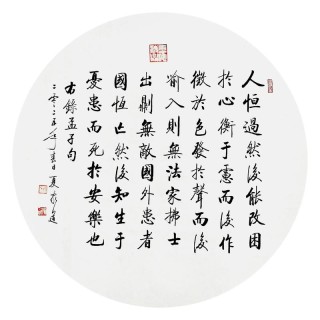 人恒過然後能改困
於心衡于慮而後作
徵於色發於聲而後
喻入則無法家拂士
出則無敵國外患者
國恒亡然後知生于
憂患而死於安樂也
右錄孟子句
二零二五年春日夏